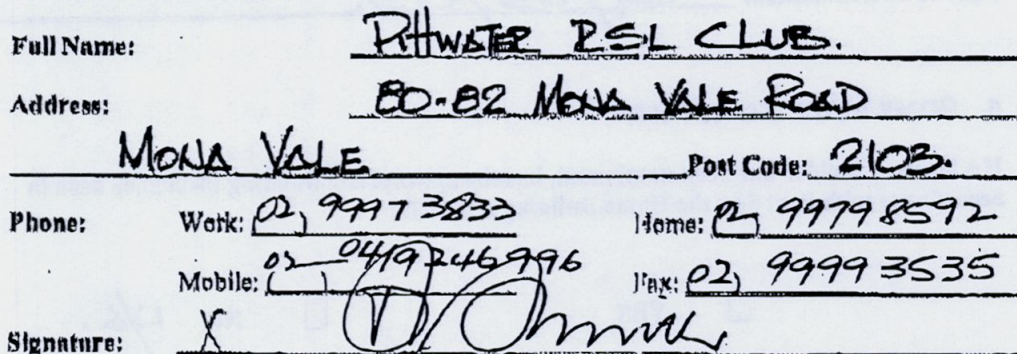 Full Name: PITTWATER RSL CLUB.
Address: 80-82 MONA VALE ROAD
MONA VALE Post Code: 2103.
Phone: Work: (02) 9997 3833 Home: (02) 99798592
Mobile: ( ) 0419 246996 Fax: (02) 9999 3535
Signature: X